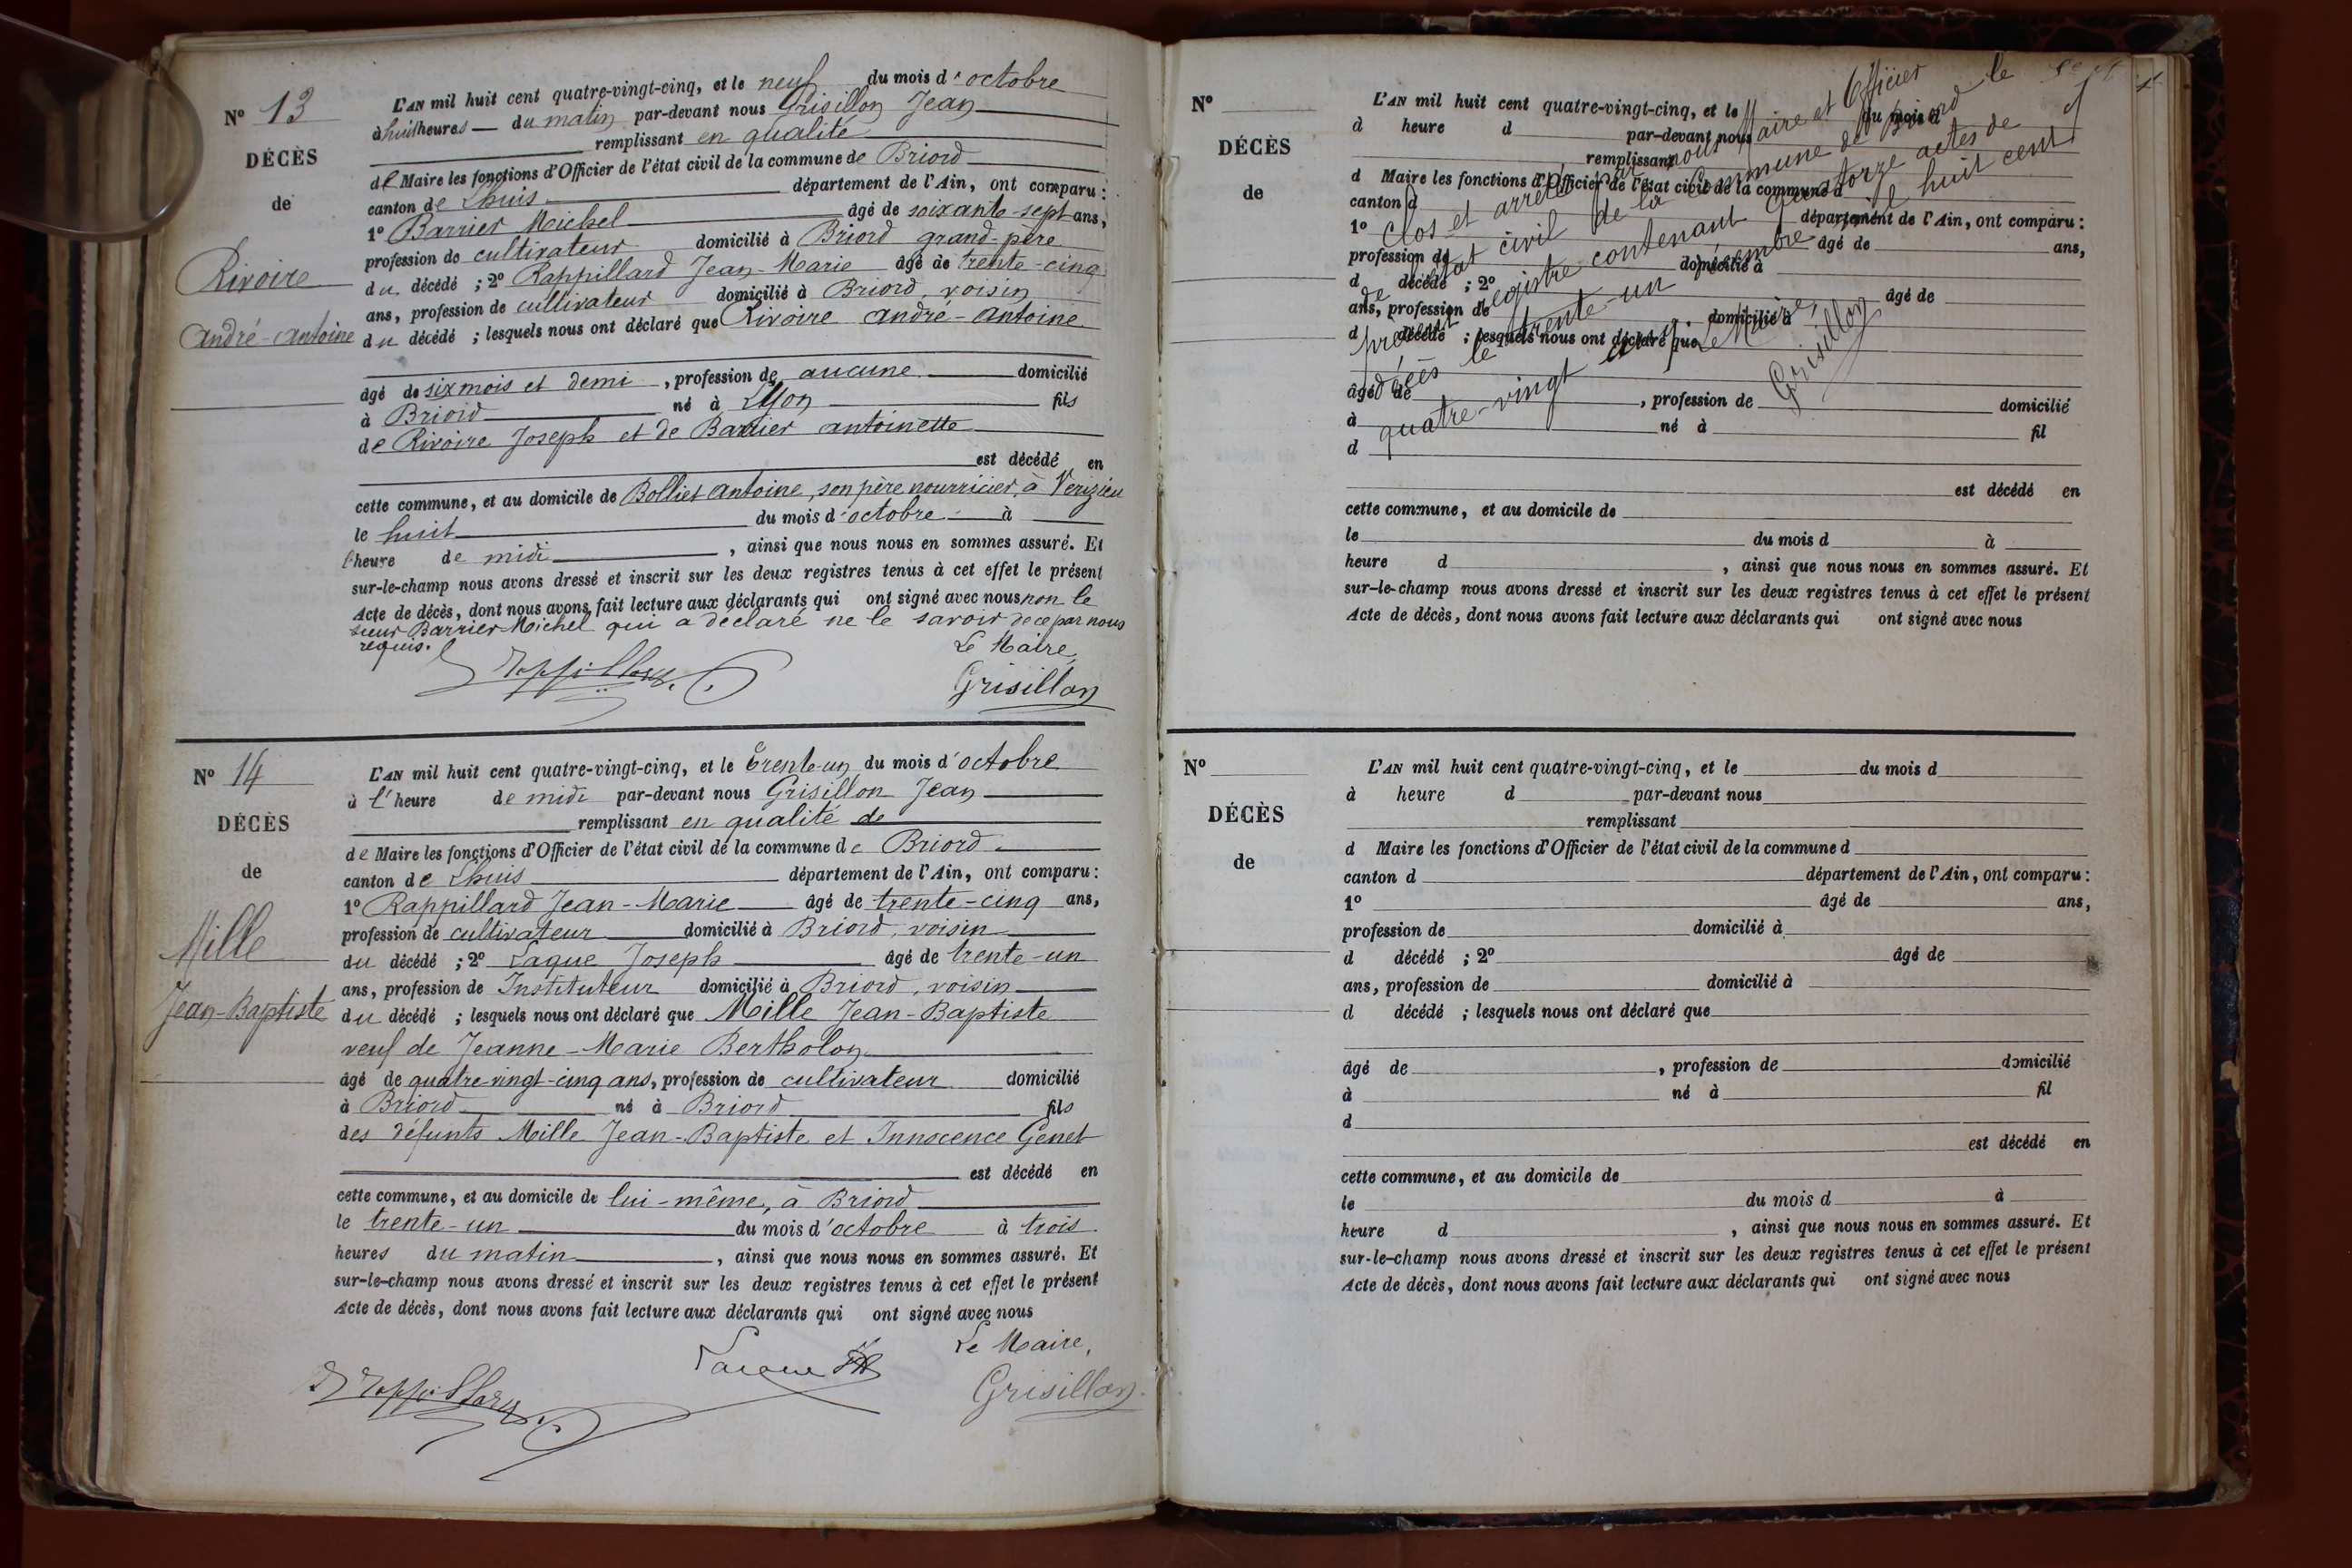 Nº 13
DÉCÈS
de
Rivoire
André-Antoine
L'AN mil huit cent quatre-vingt-cinq, et le neuf du mois d'octobre
à huit heures du matin par-devant nous Grisillon Jean
remplissant en qualité
de Maire les fonctions d'Officier de l'état civil de la commune de Briord
canton de Lhuis département de l'Ain, ont comparu :
1º Barrier Michel âgé de soixante-sept ans,
profession de cultivateur domicilié à Briord grand-père
du décédé ; 2º Rappillard Jean-Marie âgé de trente-cinq
ans, profession de cultivateur domicilié à Briord, voisin
du décédé ; lesquels nous ont déclaré que Rivoire André-Antoine
âgé de six mois et demi, profession de aucune domicilié
à Briord né à Lyon fils
de Rivoire Joseph et de Barrier antoinette
est décédé en
cette commune, et au domicile de Bollier Antoine, son père nourricier, à Verizieu
le huit du mois d'octobre à
l'heure de midi, ainsi que nous nous en sommes assuré. Et
sur-le-champ nous avons dressé et inscrit sur les deux registres tenus à cet effet le présent
Acte de décès, dont nous avons fait lecture aux déclarants qui ont signé avec nous non le
sieur Barrier Michel qui a déclaré ne le savoir de ce par nous
requis.
Le Maire,
Rappillard
Grisillon
Nº 14
DÉCÈS
de
Mille
Jean-Baptiste
L'AN mil huit cent quatre-vingt-cinq, et le trente-un du mois d'octobre
à l'heure de midi par-devant nous Grisillon Jean
remplissant en qualité de
de Maire les fonctions d'Officier de l'état civil de la commune de Briord
canton de Lhuis département de l'Ain, ont comparu :
1º Rappillard Jean-Marie âgé de trente-cinq ans,
profession de cultivateur domicilié à Briord, voisin
du décédé ; 2º Laque Joseph âgé de trente-un
ans, profession de Instituteur domicilié à Briord, voisin
du décédé ; lesquels nous ont déclaré que Mille Jean-Baptiste
veuf de Jeanne-Marie Bertholon
âgé de quatre-vingt-cinq ans, profession de cultivateur domicilié
à Briord né à Briord fils
des défunts Mille Jean-Baptiste et Innocence Genet
est décédé en
cette commune, et au domicile de lui-même, à Briord
le trente-un du mois d'octobre à trois
heures du matin, ainsi que nous nous en sommes assuré. Et
sur-le-champ nous avons dressé et inscrit sur les deux registres tenus à cet effet le présent
Acte de décès, dont nous avons fait lecture aux déclarants qui ont signé avec nous
Le Maire,
Rappillard
Laque
Grisillon
Nº
DÉCÈS
de
L'AN mil huit cent quatre-vingt-cinq, et le du mois d
à heure d par-devant nous
remplissant
d Maire les fonctions d'Officier de l'état civil de la commune d
canton d département de l'Ain, ont comparu :
1º âgé de ans,
profession de domicilié à
d décédé ; 2º âgé de
ans, profession de domicilié à
d décédé ; lesquels nous ont déclaré que
âgé de , profession de domicilié
à né à fil
d
est décédé en
cette commune, et au domicile de
le du mois d à
heure d , ainsi que nous nous en sommes assuré. Et
sur-le-champ nous avons dressé et inscrit sur les deux registres tenus à cet effet le présent
Acte de décès, dont nous avons fait lecture aux déclarants qui ont signé avec nous
Clos et arrêté par nous Maire et Officier
de l'état civil de la commune de Briord le
présent registre contenant quatorze actes de
décès le trente-un décembre mil huit cent
quatre-vingt cinq.
Le Maire,
Grisillon
Nº
DÉCÈS
de
L'AN mil huit cent quatre-vingt-cinq, et le du mois d
à heure d par-devant nous
remplissant
d Maire les fonctions d'Officier de l'état civil de la commune d
canton d département de l'Ain, ont comparu :
1º âgé de ans,
profession de domicilié à
d décédé ; 2º âgé de
ans, profession de domicilié à
d décédé ; lesquels nous ont déclaré que
âgé de , profession de domicilié
à né à fil
d
est décédé en
cette commune, et au domicile de
le du mois d à
heure d , ainsi que nous nous en sommes assuré. Et
sur-le-champ nous avons dressé et inscrit sur les deux registres tenus à cet effet le présent
Acte de décès, dont nous avons fait lecture aux déclarants qui ont signé avec nous